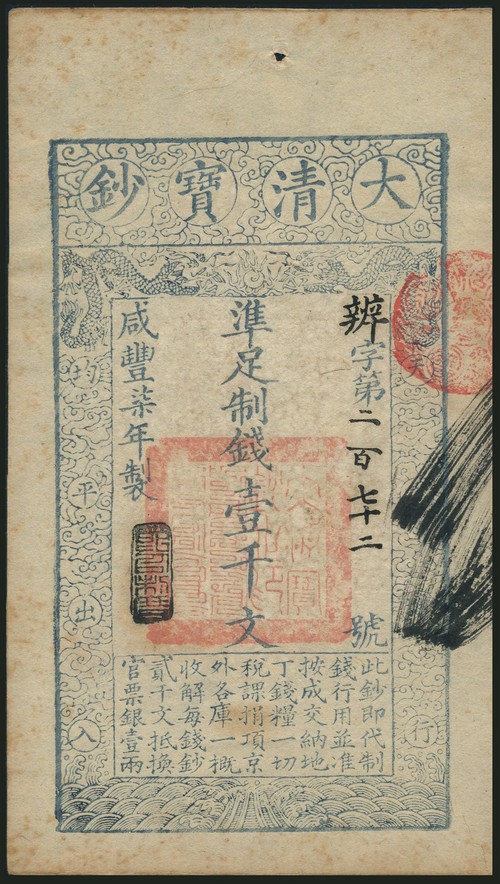 大清寶鈔
天 行
辨字第二百七十二號
準足制錢壹千文
咸豐柒年製
均平出入
此鈔即代制
錢行用並准
按成交納地
丁錢糧一切
稅課捐項京
外各庫一概
收解每錢鈔
貳千文抵換
官票銀壹兩